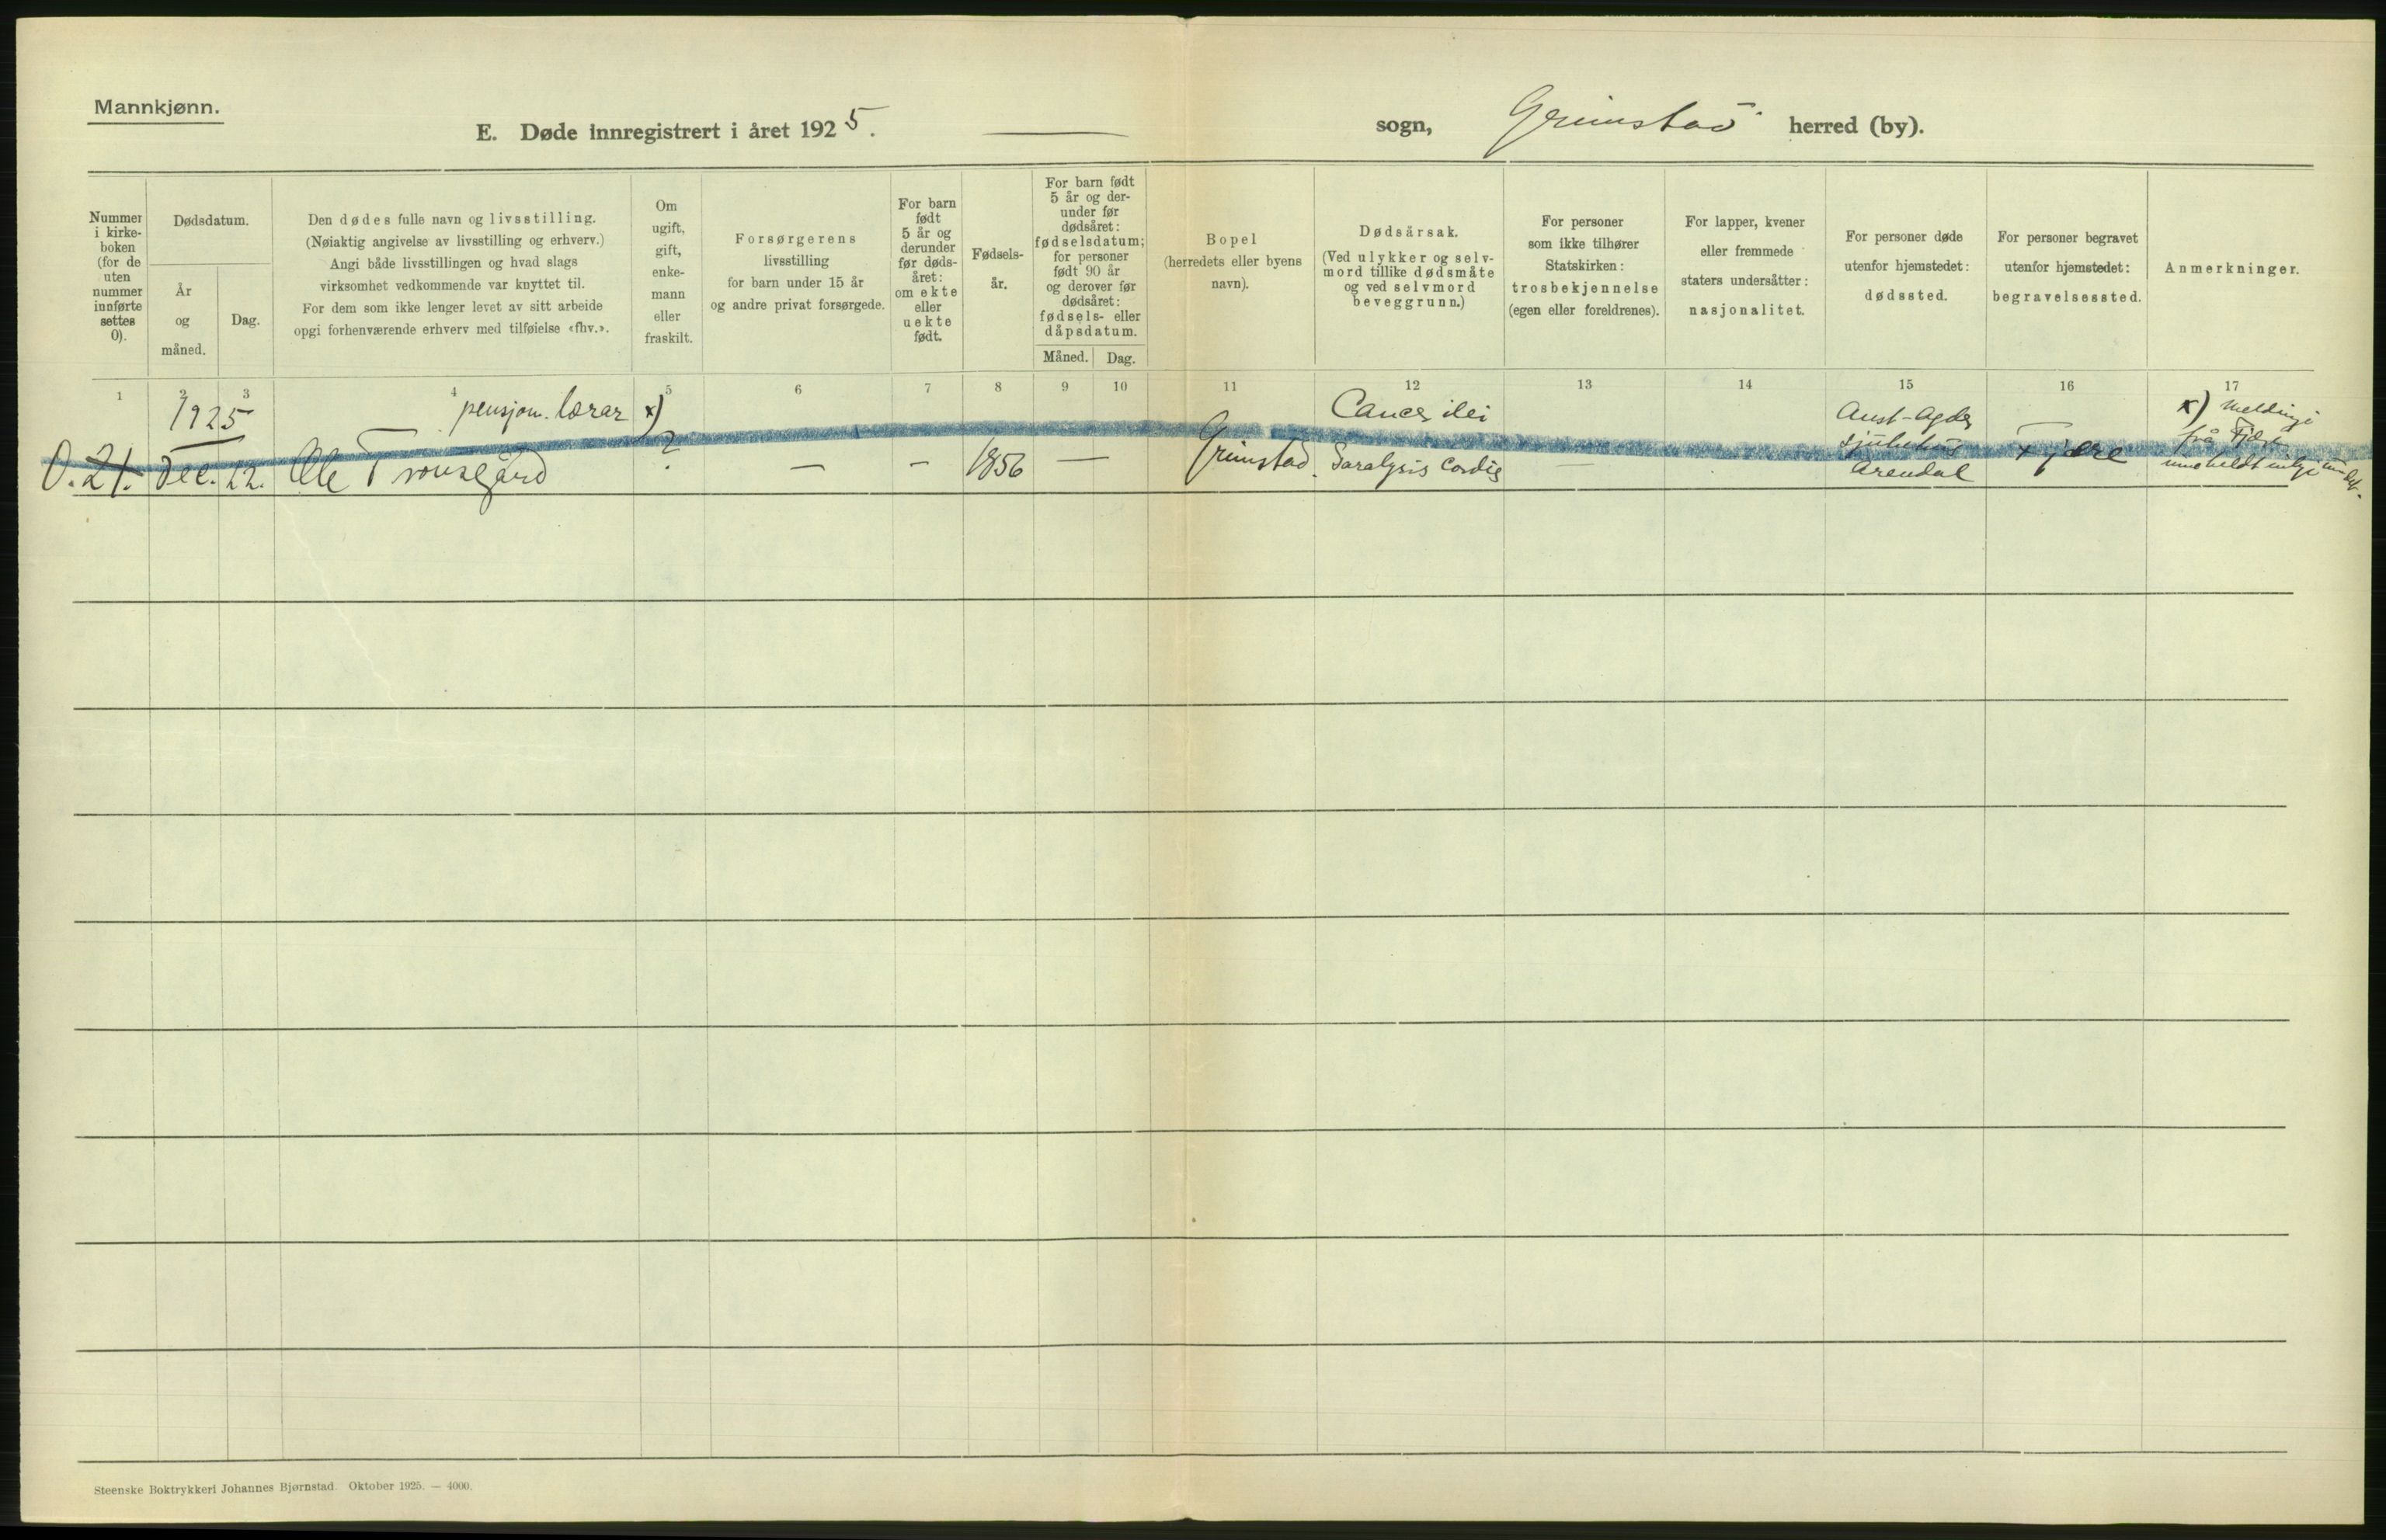 Mannkjønn.
E. Døde innregistrert i året 1925. — sogn, Grimstad herred (by).
Nummer
i kirke-
boken
(for de
uten
nummer
innførte
settes
0).
Dødsdatum.
År
og
måned.
Dag.
Den dødes fulle navn og livsstilling.
(Nøiaktig angivelse av livsstilling og erhverv.)
Angi både livsstillingen og hvad slags
virksomhet vedkommende var knyttet til.
For dem som ikke lenger levet av sitt arbeide
opgi forhenværende erhverv med tilføielse «fhv.».
Om
ugift,
gift,
enke-
mann
eller
fraskilt.
Forsørgerens
livsstilling
for barn under 15 år
og andre privat forsørgede.
For barn
født
5 år og
derunder
før døds-
året:
om ekte
eller
uekte
født.
Fødsels-
år.
For barn født
5 år og der-
under før
dødsåret:
fødselsdatum;
for personer
født 90 år
og derover før
dødsåret:
fødsels- eller
dåpsdatum.
Måned. Dag.
Bopel
(herredets eller byens
navn).
Dødsårsak.
(Ved ulykker og selv-
mord tillike dødsmåte
og ved selvmord
beveggrunn.)
For personer
som ikke tilhører
Statskirken:
trosbekjennelse
(egen eller foreldrenes).
For lapper, kvener
eller fremmede
staters undersåtter:
nasjonalitet.
For personer døde
utenfor hjemstedet:
dødssted.
For personer begravet
utenfor hjemstedet:
begravelsessted.
Anmerkninger.
1 2 3 4 5 6 7 8 9 10 11 12 13 14 15 16 17
1925 pensjon. lærar x) Cancer ilei Aust-Agder x) Melding
? sjukehus frå Fjære
0. 21. Dec. 22. Ole Tronsegård — — 1856 — Grimstad. Paralysis Cordis — Arendal Fjære inneheldt
Steenske Boktrykkeri Johannes Bjørnstad. Oktober 1925. — 4000.